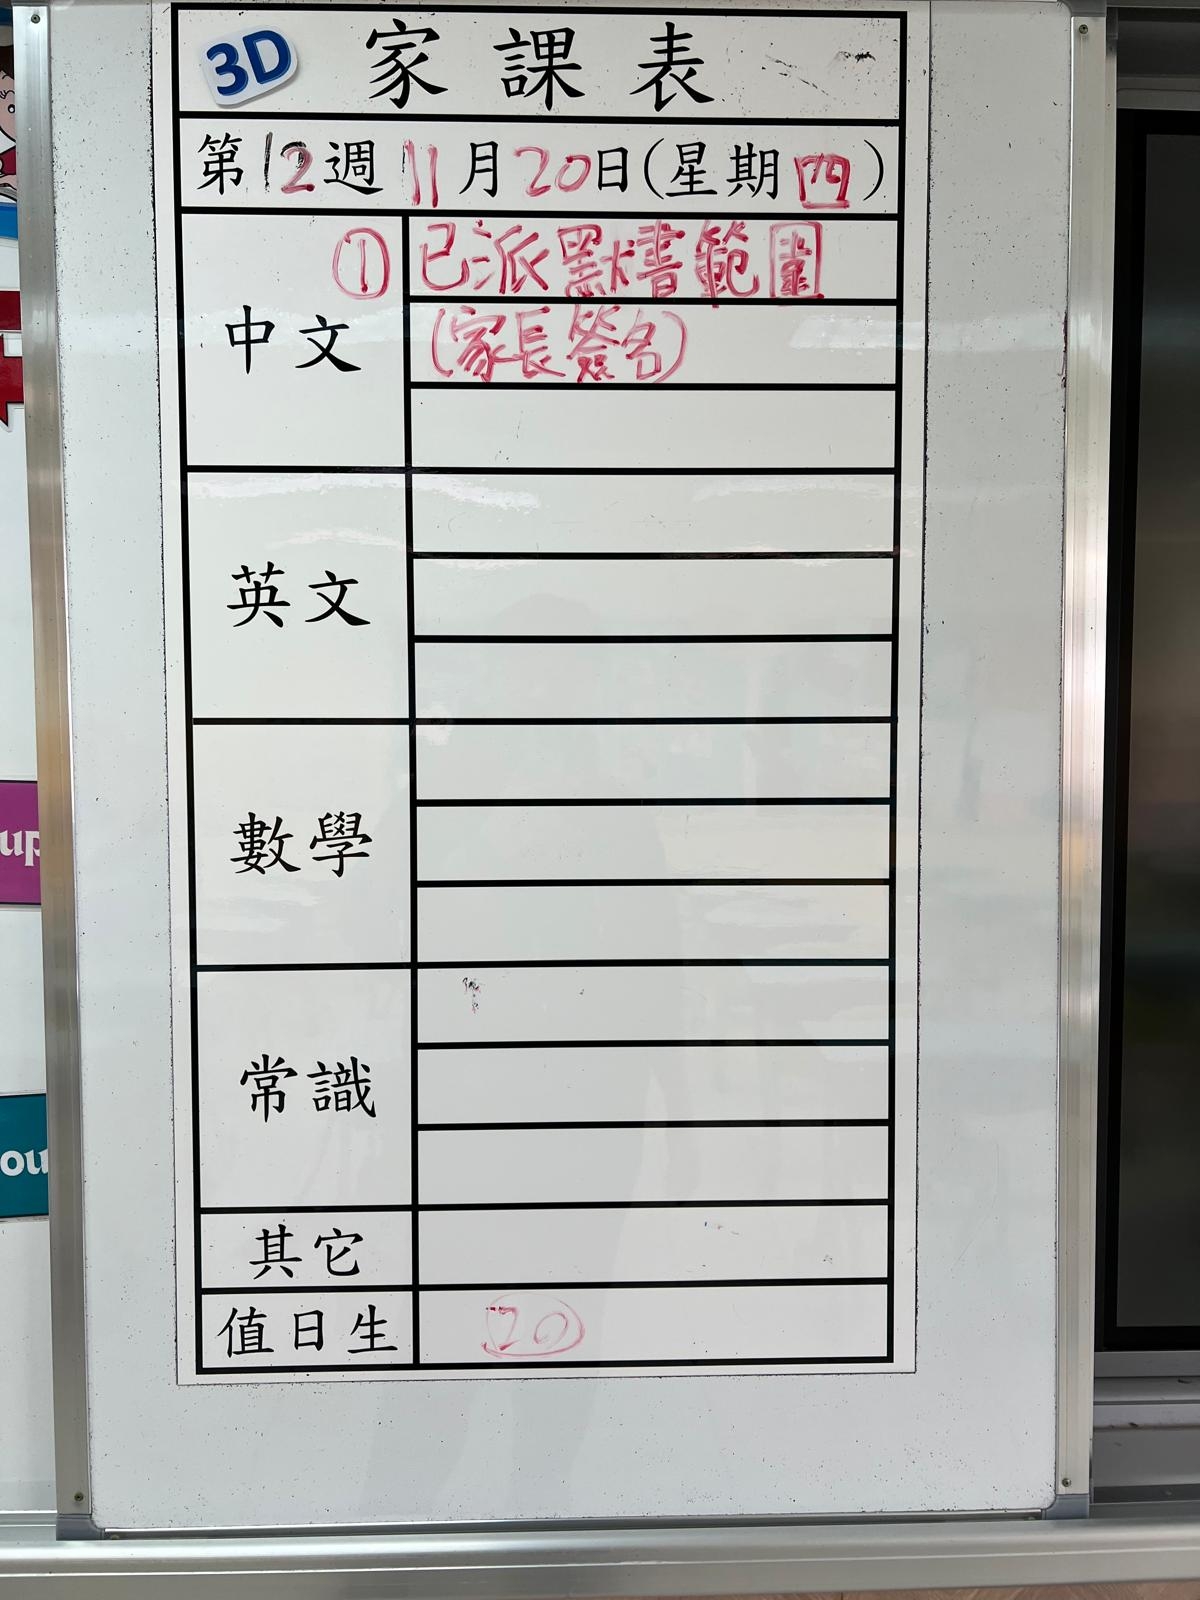 3D 家課表
第12週 11月20日(星期四)
中文 ① 已派默書範圍
(家長簽名)
英文
數學
常識
其它
值日生 20
up
ou